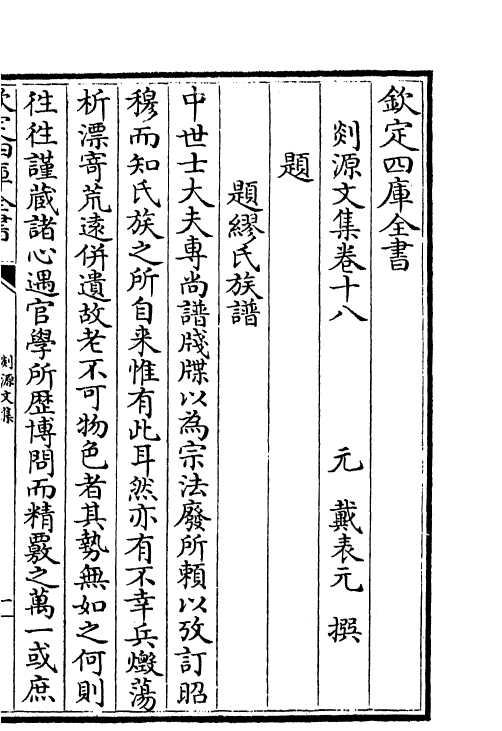 欽定四庫全書
剡源文集卷十八　元　戴表元　撰
題
題繆氏族譜
中世士大夫專尚譜牋牒以為宗法廢所頼以攷訂昭
穆而知氏族之所自来惟有此耳然亦有不幸兵燬蕩
析漂寄荒逺併遺故老不可物色者其勢無如之何則
徃徃謹蔵諸心遇官學所歴博問而精覈之萬一或庶
欽定四庫全書
剡源文集
一